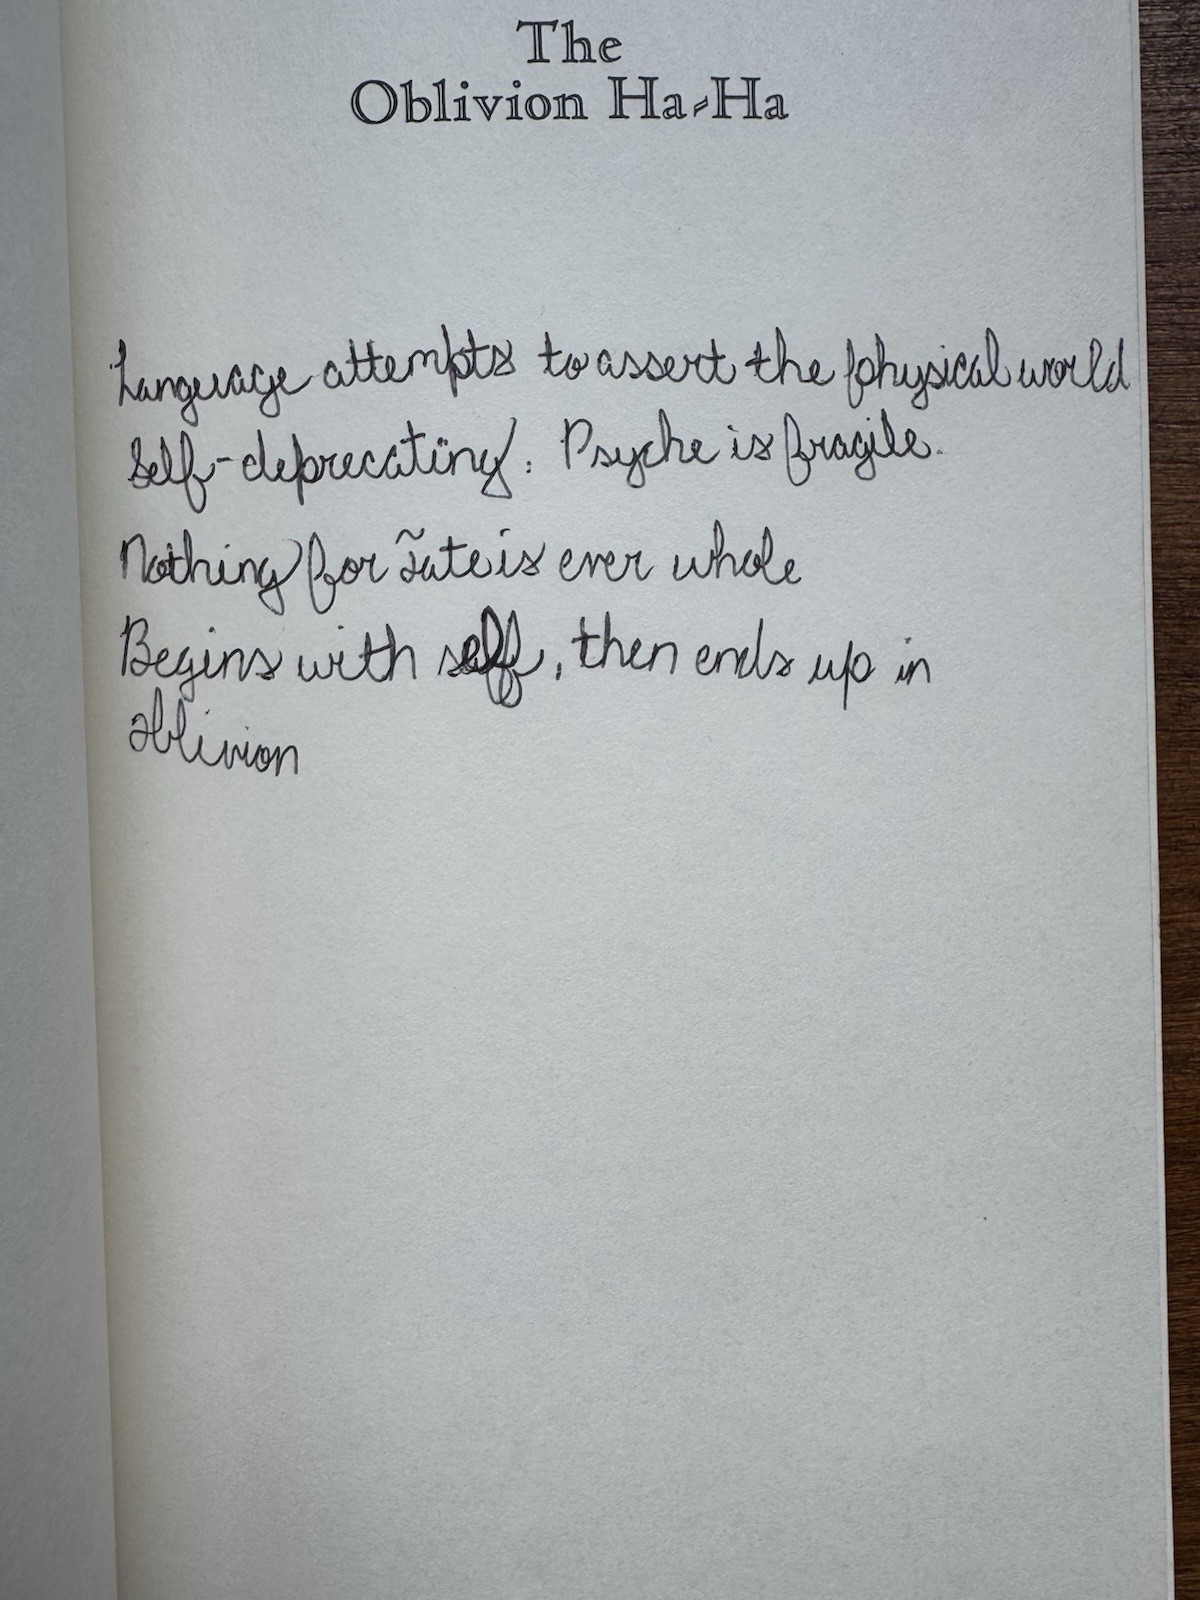 The
Oblivion Ha-Ha
Language attempts to assert the physical world
Self-deprecating. Psyche is fragile.
Nothing for Tate is ever whole
Begins with self, then ends up in
oblivion